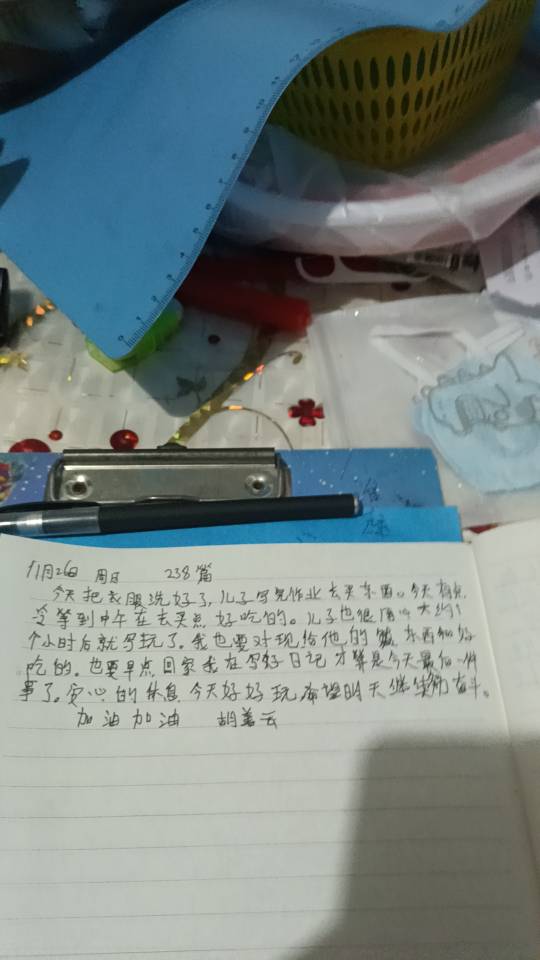 11月26日 周日 238篇
今天把衣服洗好了,儿子写完作业去买东西。今天有点
冷等到中午在去买点好吃的。儿子也很 大约1
个小时后就写玩了。我也要对现给他的 东西和好
吃的。也要早点回家我在写好日记才算是今天最后一件
事了。安心的休息今天好好玩希望明天继续 奋斗。
加油加油 胡善云